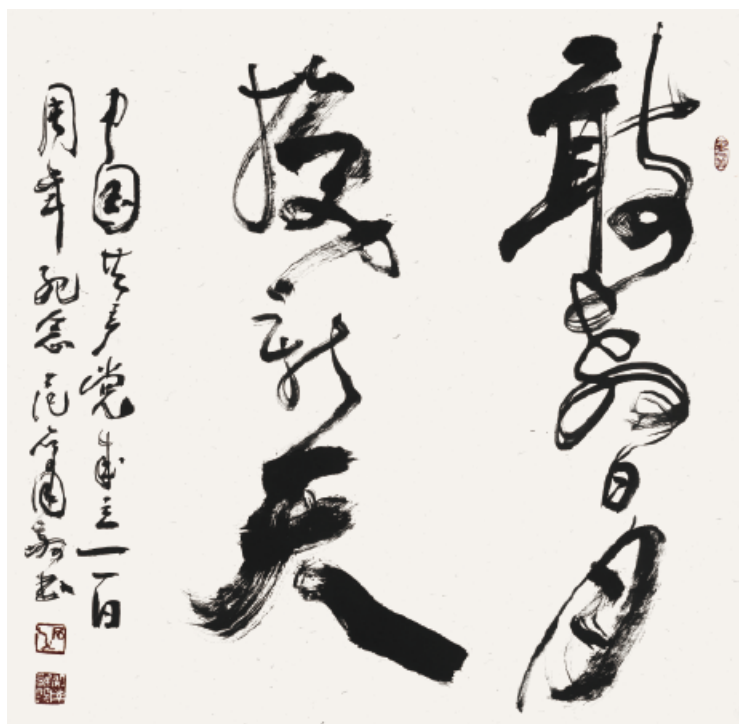 敢教日月
换新天
中国共产党成立一百
周年纪念 范石 书